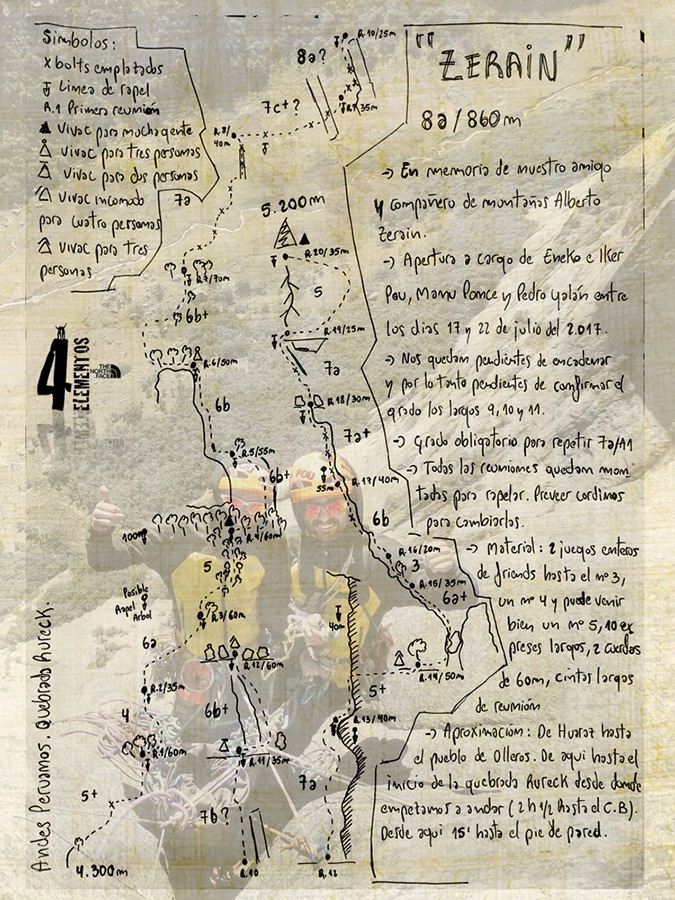 Simbolos:
x bolts emplatados
Linea de rapel
R.1 Primera reunión
Vivac para mucha gente
Vivac para tres personas
Vivac para dos personas
Vivac incomodo
para cuatro personas
Vivac para tres
personas
"ZERAIN"
8a/860m
→ En memoria de nuestro amigo
y compañero de montañas Alberto
Zerain.
→ Apertura a cargo de Eneko e Iker
Pou, Manu Ponce y Pedro Galán entre
los dias 17 y 22 de julio del 2.017.
→ Nos quedan pendientes de encadenar
y por lo tanto pendientes de confirmar el
grado los largos 9, 10 y 11.
→ Grado obligatorio para repetir 7a/A1
→ Todas las reuniones quedan mon
tadas para rapelar. Preveer cordinos
para cambiarlos.
→ Material: 2 juegos enteros
de friends hasta el nº 3,
un nº 4 y puede venir
bien un nº 5, 10 ex
preses largos, 2 cuerdas
de 60m, cintas largas
de reunión
→ Aproximación: De Huaraz hasta
el pueblo de Olleros. De aqui hasta el
inicio de la quebrada Rureck desde donde
empezamos a andar (2h 1/2 hasta el C.B).
Desde aqui 15' hasta el pie de pared.
8a?
R.10/25m
R.9/35m
7c+?
R.8/
40m
7a
R.7/70m
6b+
R.6/50m
6b
R.5/55m
6b+
100m
R.4/60m
5
Posible
Rapel
Arbol
R.3/60m
6a
R.2/35m
4
R.1/60m
5+
4.300m
5.200m
R.20/35m
5
R.19/25m
7a
R.18/30m
7a+
55m
R.17/40m
6b
R.16/20m
3
R.15/35m
6a+
R.14/50m
5+
40m
R.13/40m
7a
R.12
R.12/60m
6b+
R.11/35m
7b?
R.10
4
ELEMENTOS
THE
NORTH
FACE
POU
Andes Peruanos. Quebrada Rureck.